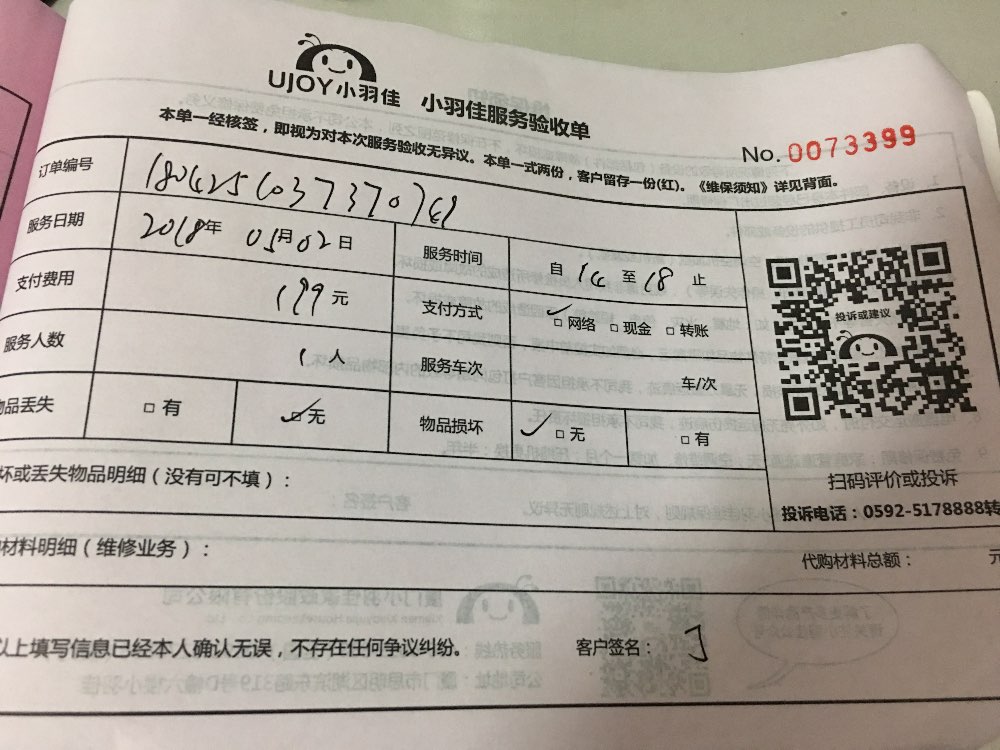 UJOY小羽佳 小羽佳服务验收单
本单一经核签，即视为对本次服务验收无异议。本单一式两份，客户留存一份(红)。《维保须知》详见背面。
No. 0073399
订单编号
服务日期 2018年 05月 02日 服务时间 自 14 至 18 止
支付费用 199元 支付方式 ☑网络 □现金 □转账
服务人数 1人 服务车次 车/次
物品丢失 □有 ☑无 物品损坏 ☑无 □有
投诉或建议
扫码评价或投诉
投诉电话：0592-5178888转
坏或丢失物品明细（没有可不填）：
材料明细（维修业务）： 代购材料总额： 元
以上填写信息已经本人确认无误，不存在任何争议纠纷。 客户签名：